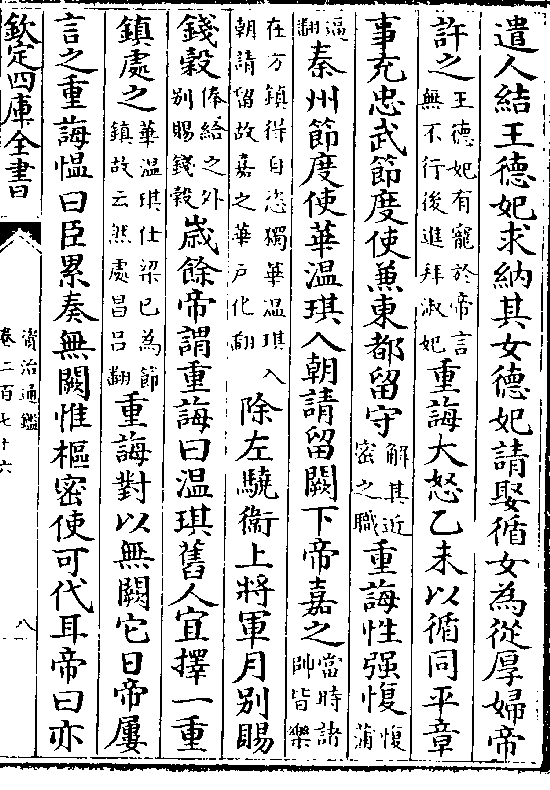 遣人結王德妃求納其女德妃請娶循女為從厚婦帝
許之王德妃有寵於帝言無不行後進拜淑妃重誨大怒乙未以循同平章
事充忠武節度使兼東都留守解其近密之職重誨性强愎愎蒲
逼翻秦州節度使華温琪入朝請留闕下帝嘉之當時諸帥皆樂
在方鎮得自恣獨華温琪入朝請留故嘉之華户化翻除左驍衛上將軍月别賜
錢穀俸給之外别賜錢穀歳餘帝謂重誨曰温琪舊人宜擇一重
鎮處之華温琪仕梁已為節鎮故云然處昌吕翻重誨對以無闕它日帝屢
言之重誨愠曰臣累奏無闕惟樞密使可代耳帝曰亦
欽定四庫全書
資治通鑑
卷二百七十六
八